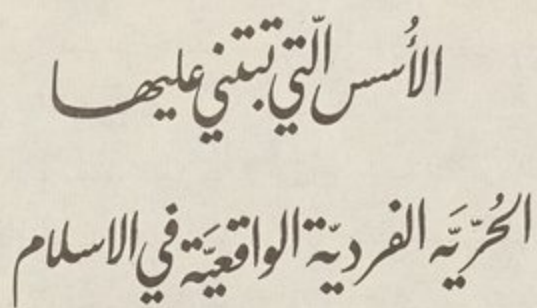 الأُسس الّتي تبتني عليها
الحُرّيَّه الفرديّة الواقعيَّة في الاسلام